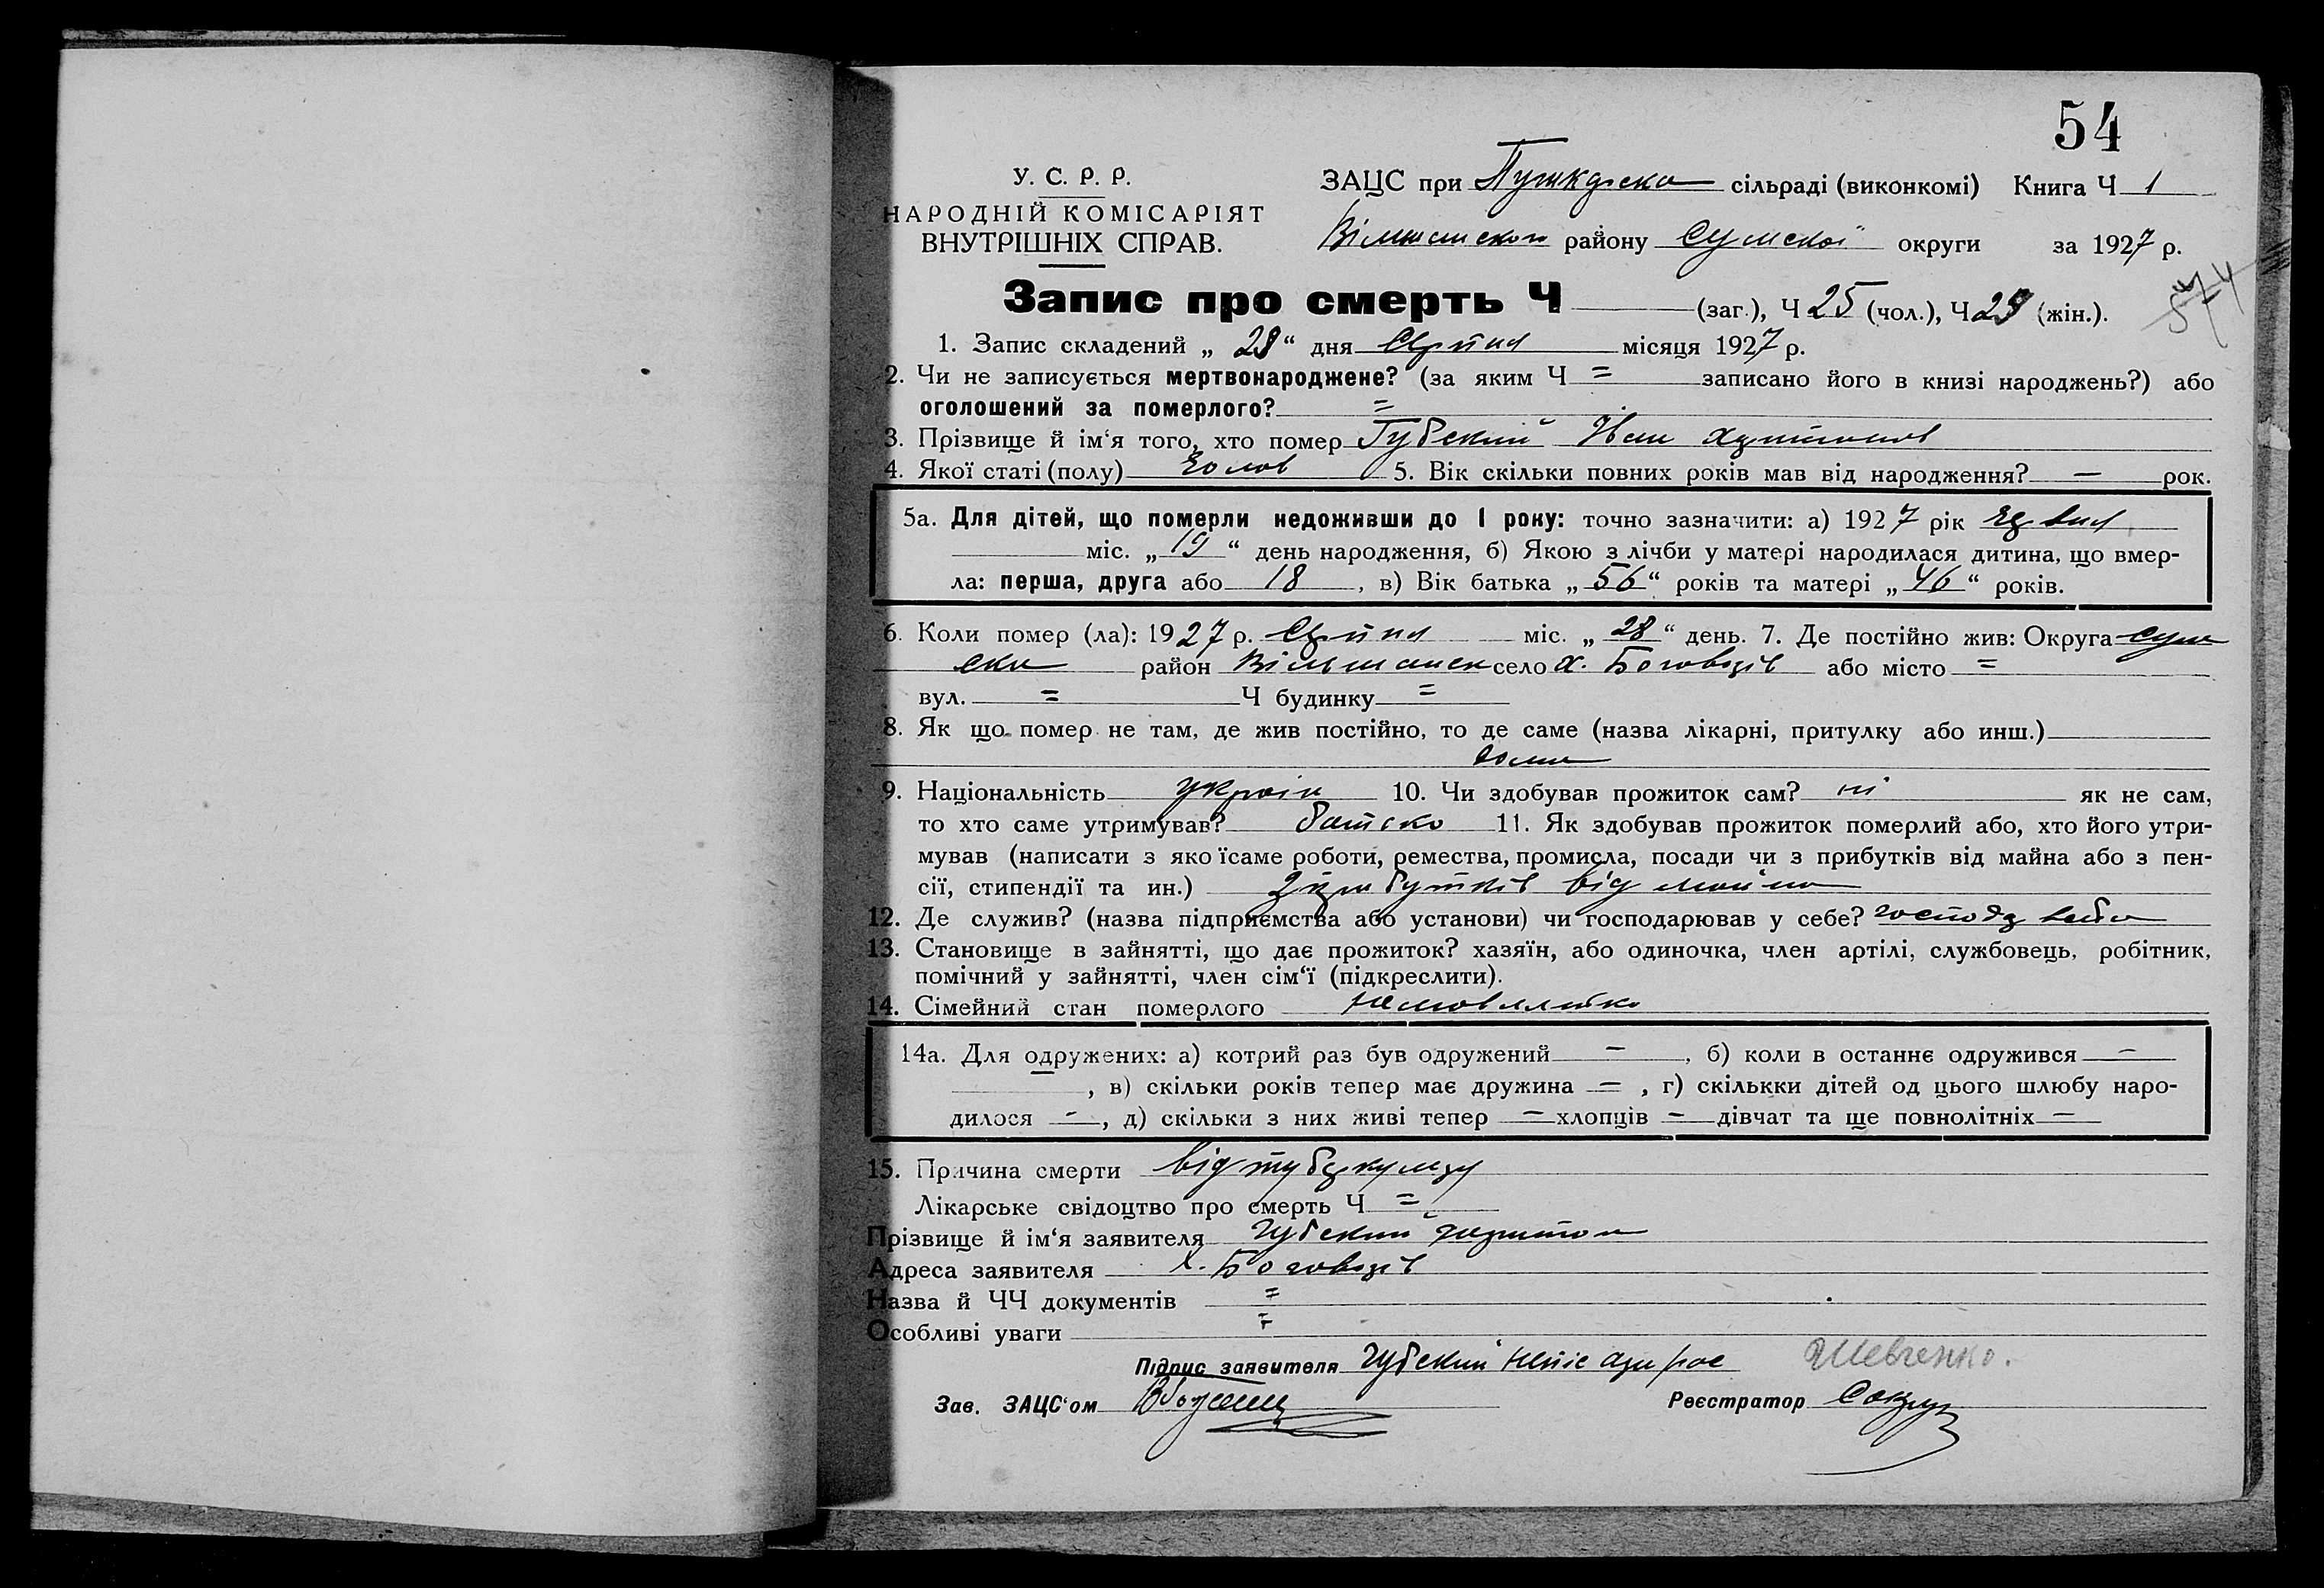 54
У. С. Р. Р.
НАРОДНІЙ КОМІСАРІЯТ
ВНУТРІШНІХ СПРАВ.
ЗАЦС при сільраді (виконкомі) Книга Ч 1
району Сумскої округи за 1927 р.
Запис про смерть Ч (заг.), Ч 25 (чол.), Ч (жін.).
1. Запис складений „ " дня Серпня місяця 1927 р.
2. Чи не записується мертвонароджене? (за яким Ч = записано його в книзі народжень?) або
оголошений за померлого? =
3. Прізвище й ім'я того, хто помер Губский Иван
4. Якої статі (полу) Чолов 5. Вік скільки повних років мав від народження? — рок.
5а. Для дітей, що померли недоживши до 1 року: точно зазначити: а) 1927 рік
міс. „19" день народження, б) Якою з лічби у матері народилася дитина, що вмер-
ла: перша, друга або 18, в) Вік батька „56" років та матері „46" років.
6. Коли помер (ла): 1927 р. Серпня міс. „28" день. 7. Де постійно жив: Округа Сум
ска район Вільшанск село х. або місто =
вул. = Ч будинку =
8. Як що помер не там, де жив постійно, то де саме (назва лікарні, притулку або инш.)
дома
9. Національність україн 10. Чи здобував прожиток сам? ні як не сам,
то хто саме утримував? батько 11. Як здобував прожиток померлий або, хто його утри-
мував (написати з якоїсаме роботи, ремества, промисла, посади чи з прибутків від майна або з пен-
сії, стипендії та ин.) з прибутків від майна
12. Де служив? (назва підприємства або установи) чи господарював у себе? господ себе
13. Становище в зайнятті, що дає прожиток? хазяїн, або одиночка, член артілі, службовець, робітник,
помічний у зайнятті, член сім'ї (підкреслити).
14. Сімейний стан померлого немовлятко
14а. Для одружених: а) котрий раз був одружений —, б) коли в останнє одружився —
, в) скільки років тепер має дружина =, г) скількки дітей од цього шлюбу наро-
дилося —, д) скільки з них живі тепер = хлопців — дівчат та ще повнолітніх —
15. Причина смерти від туберкульзу
Лікарське свідоцтво про смерть Ч =
Прізвище й ім'я заявителя Губский
Адреса заявителя х.
Назва й ЧЧ документів =
Особливі уваги =
Підпис заявителя Губский Шевченко.
Зав. ЗАЦС'ом Реєстратор